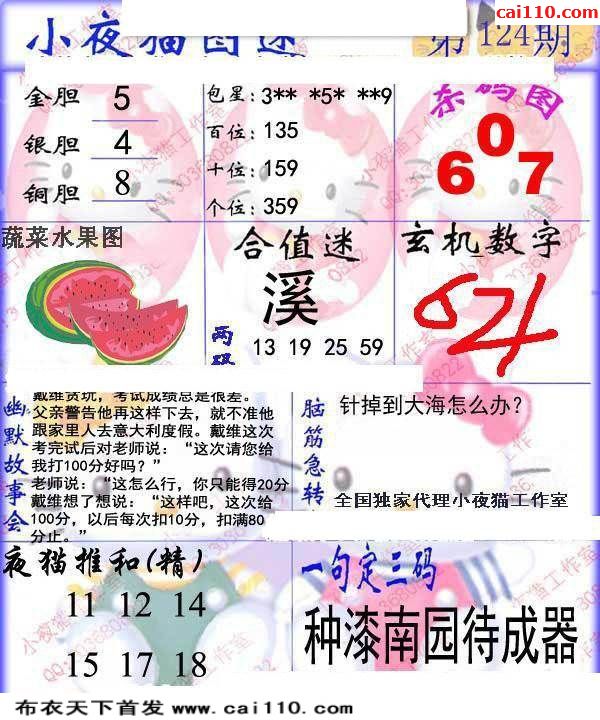 cai110.com
小夜猫图迷
第124期
金胆 5
银胆 4
铜胆 8
包星: 3** *5* **9
百位: 135
十位: 159
个位: 359
杀码图
6 0 7
蔬菜水果图
合值迷
溪
两码
13 19 25 59
玄机数字
幽默故事会
戴维贪玩，考试成绩总是很差。
父亲警告他再这样下去，就不准他
跟家里人去意大利度假。戴维这次
考完试后对老师说：“这次请您给
我打100分好吗？”
老师说：“这怎么行，你只能得20分
戴维想了想说：“这样吧，这次给
100分，以后每次扣10分，扣满80
分止。”
脑筋急转
针掉到大海怎么办？
全国独家代理小夜猫工作室
夜猫推和(精)
11 12 14
15 17 18
一句定三码
种漆南园待成器
布衣天下首发 www.cai110.com